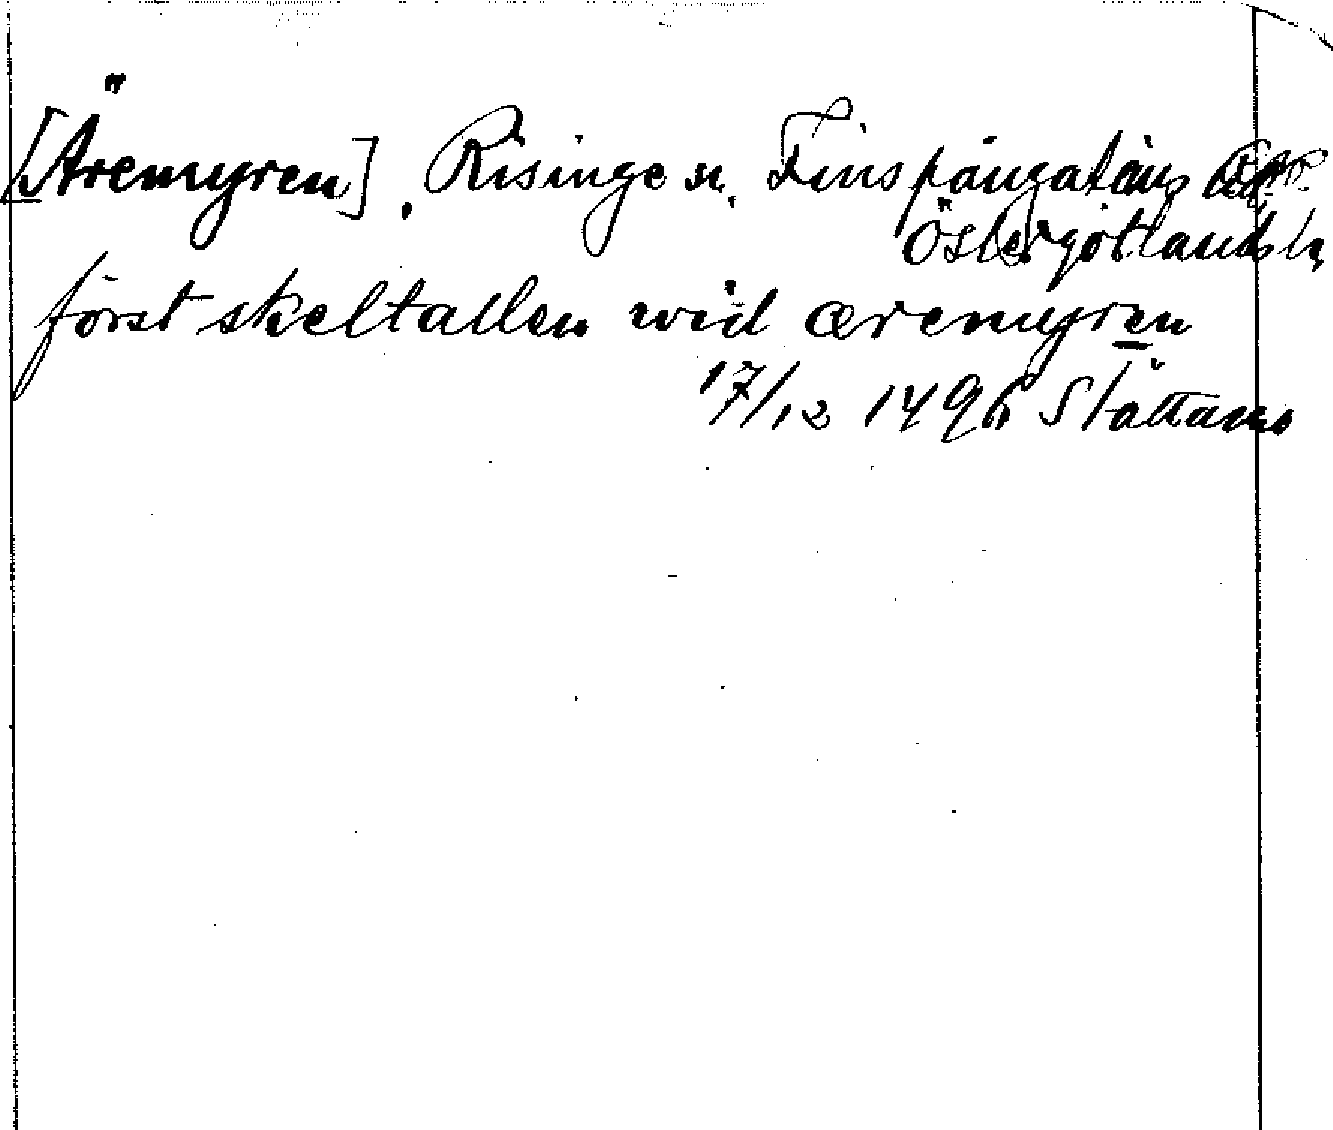 [Äremyren], Risinge sn, Finspångaläns
Östergötlands l.
först skeltallen wid æremyren
17/12 1496 Stättarp